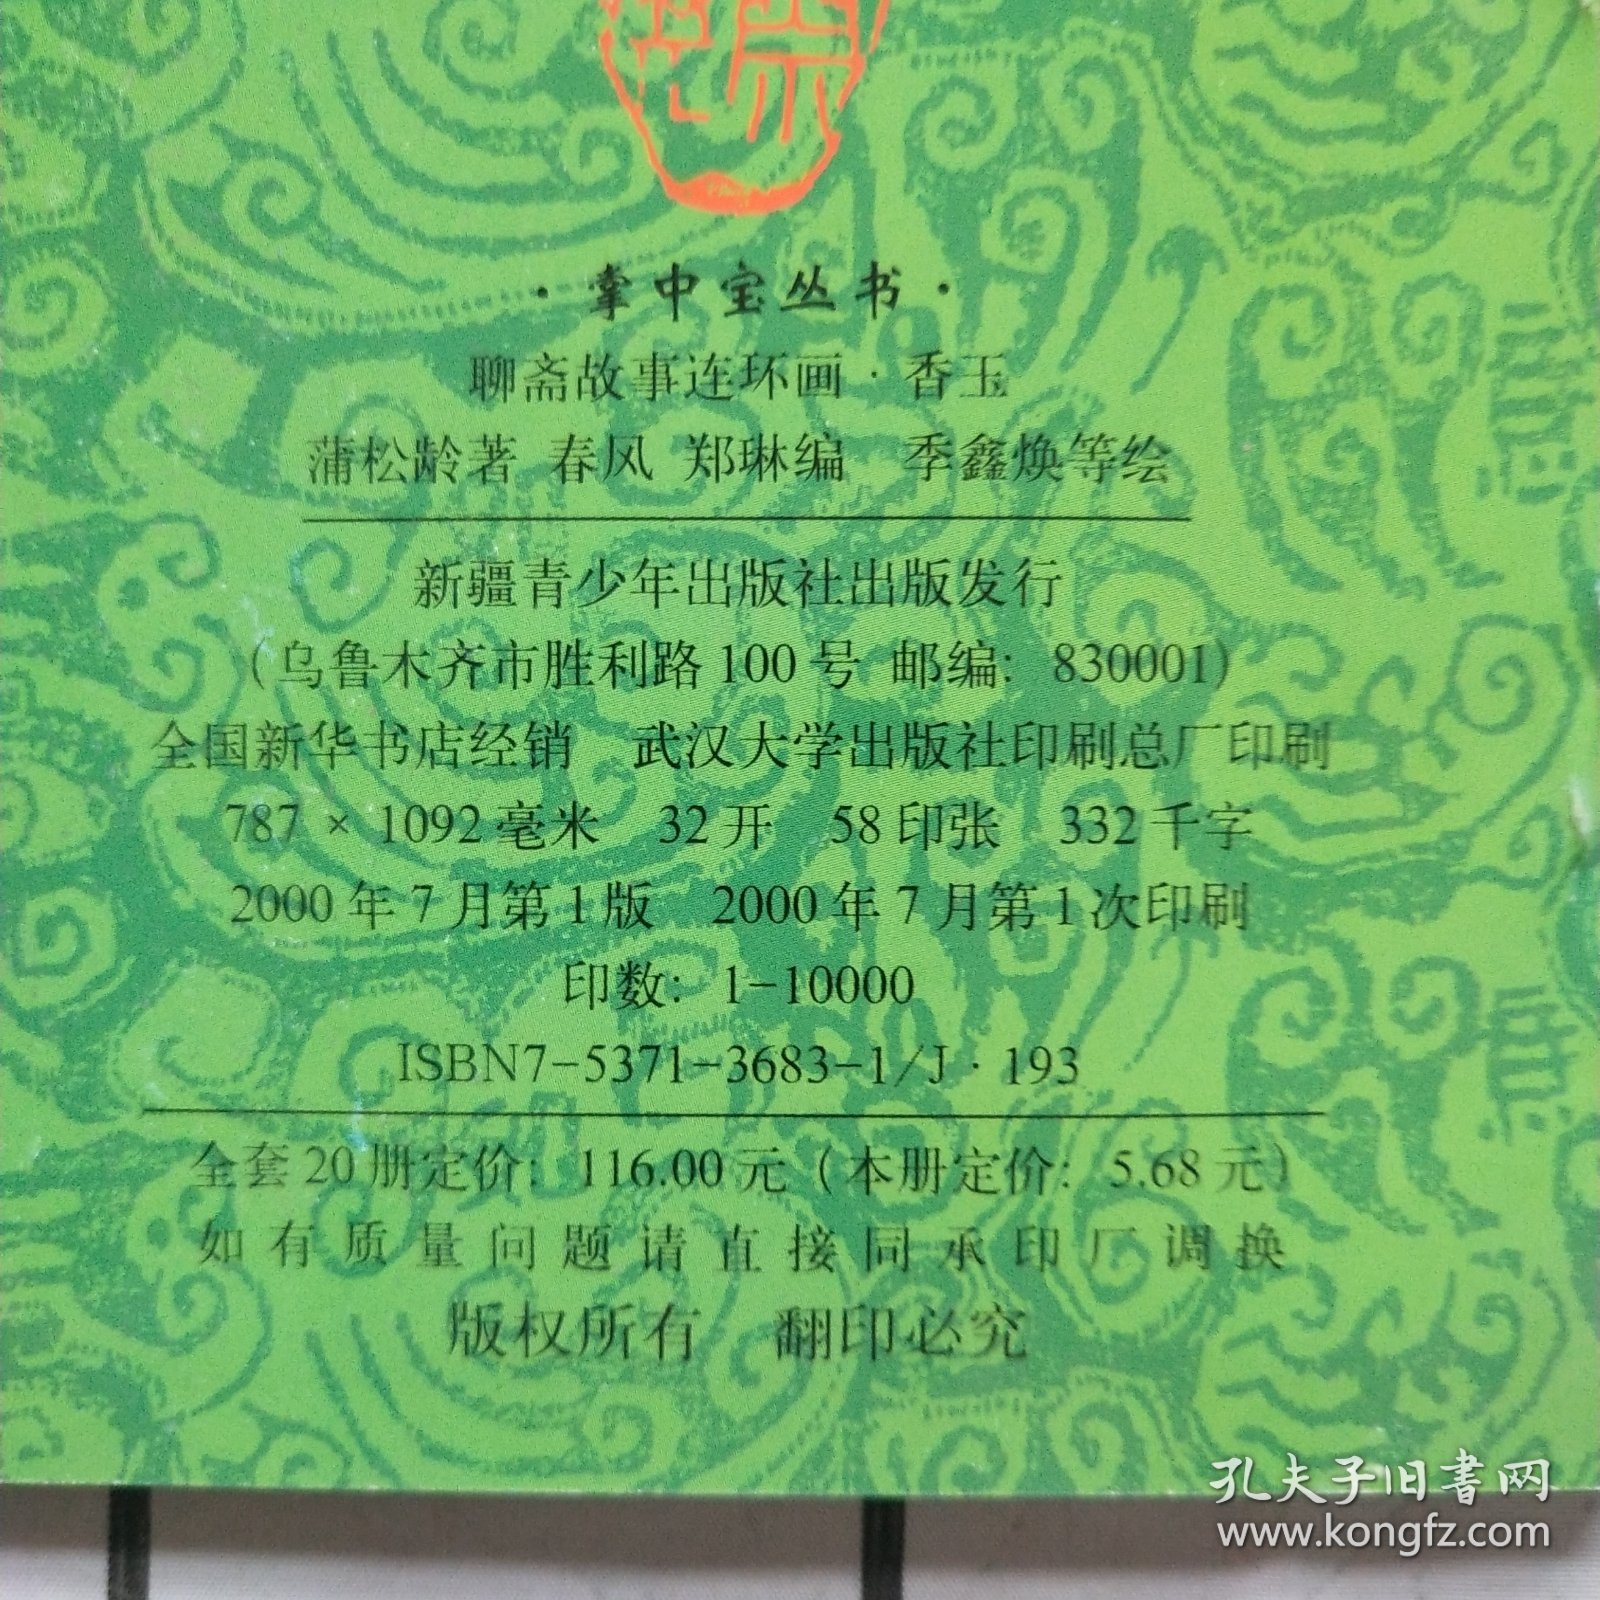 ·掌中宝丛书·
聊斋故事连环画·香玉
蒲松龄著 春风 郑琳编 季鑫焕等绘
新疆青少年出版社出版发行
(乌鲁木齐市胜利路100号 邮编：830001)
全国新华书店经销 武汉大学出版社印刷总厂印刷
787 × 1092毫米 32开 58印张 332千字
2000年7月第1版 2000年7月第1次印刷
印数：1-10000
ISBN7-5371-3683-1/J·193
全套20册定价：116.00元（本册定价：5.68元）
如有质量问题请直接同承印厂调换
版权所有 翻印必究
孔夫子旧書网
www.kongfz.com